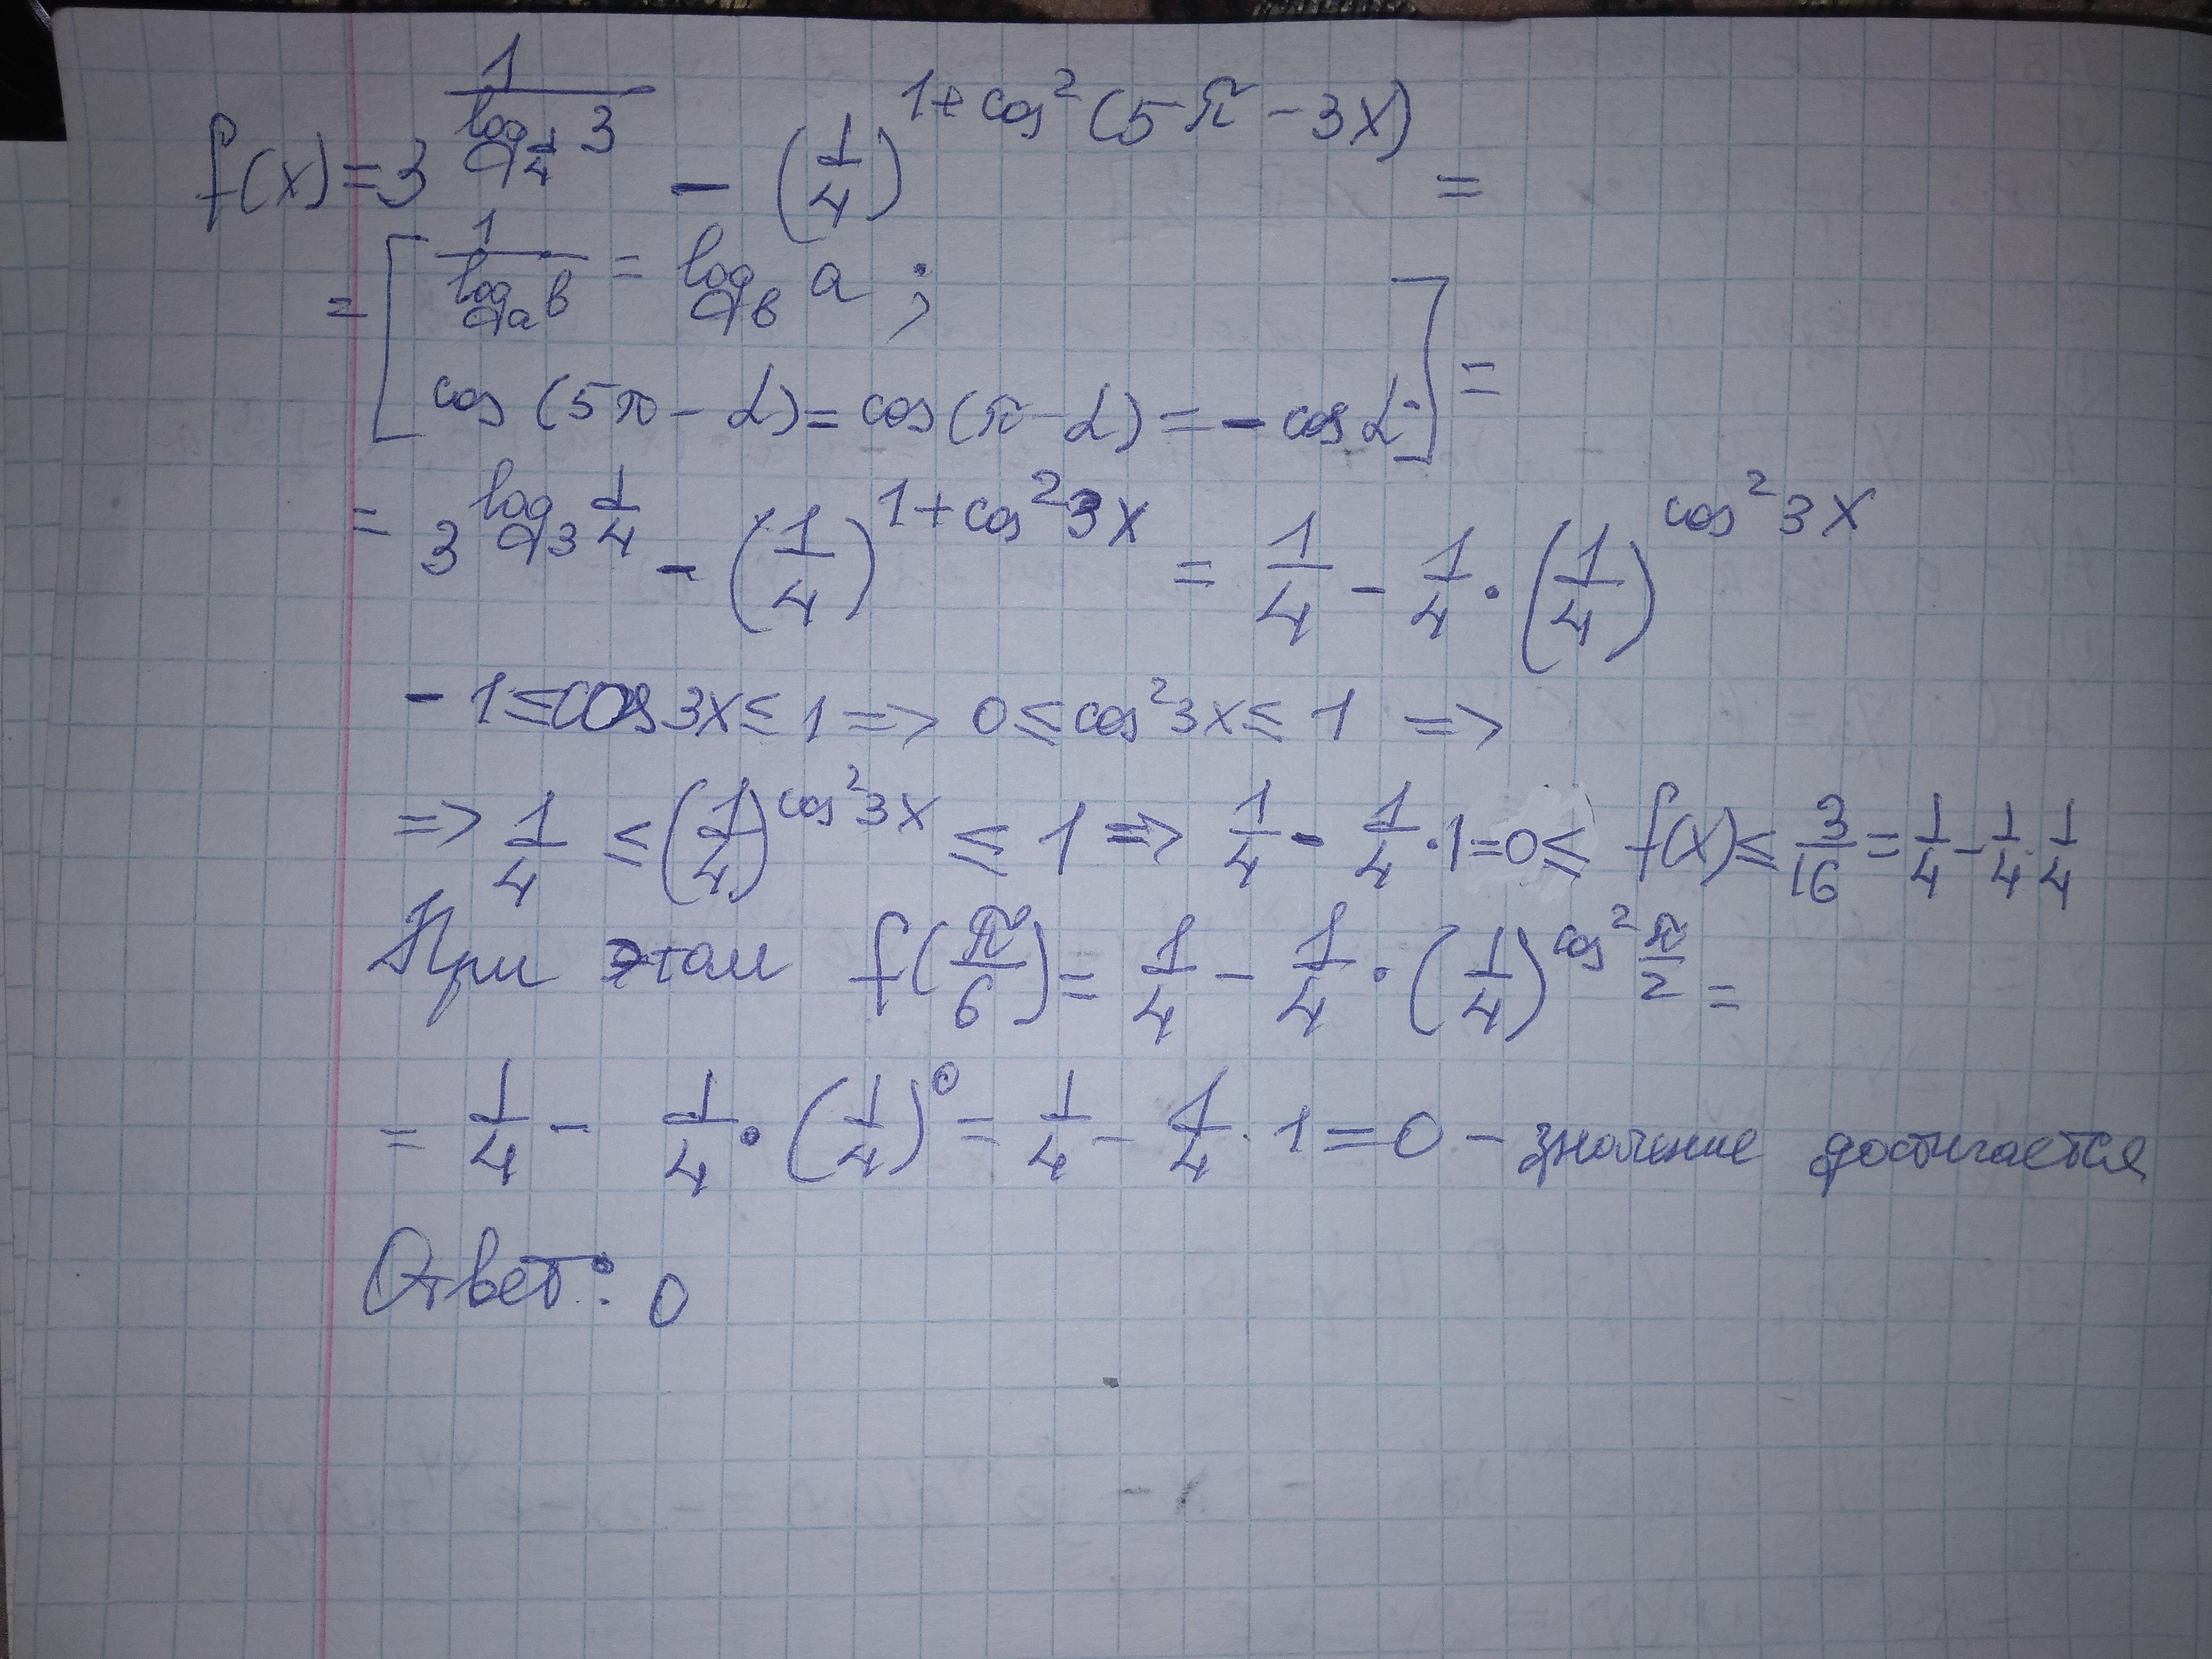 f(x) = 3^(1/(log_(1/4) 3)) - (1/4)^(1+cos²(5π-3x)) =
= [ 1/(log_a b) = log_b a ;
cos(5π-α) = cos(π-α) = -cos α ] =
= 3^(log_3 1/4) - (1/4)^(1+cos²3x) = 1/4 - 1/4 · (1/4)^(cos²3x)
-1≤cos3x≤1 => 0≤cos²3x≤1 =>
=> 1/4 ≤ (1/4)^(cos²3x) ≤ 1 => 1/4 - 1/4 · 1 = 0 ≤ f(x) ≤ 3/16 = 1/4 - 1/4 · 1/4
При этом f(π/6) = 1/4 - 1/4 · (1/4)^(cos² π/2) =
= 1/4 - 1/4 · (1/4)^0 = 1/4 - 1/4 · 1 = 0 - значение достигается
Ответ: 0